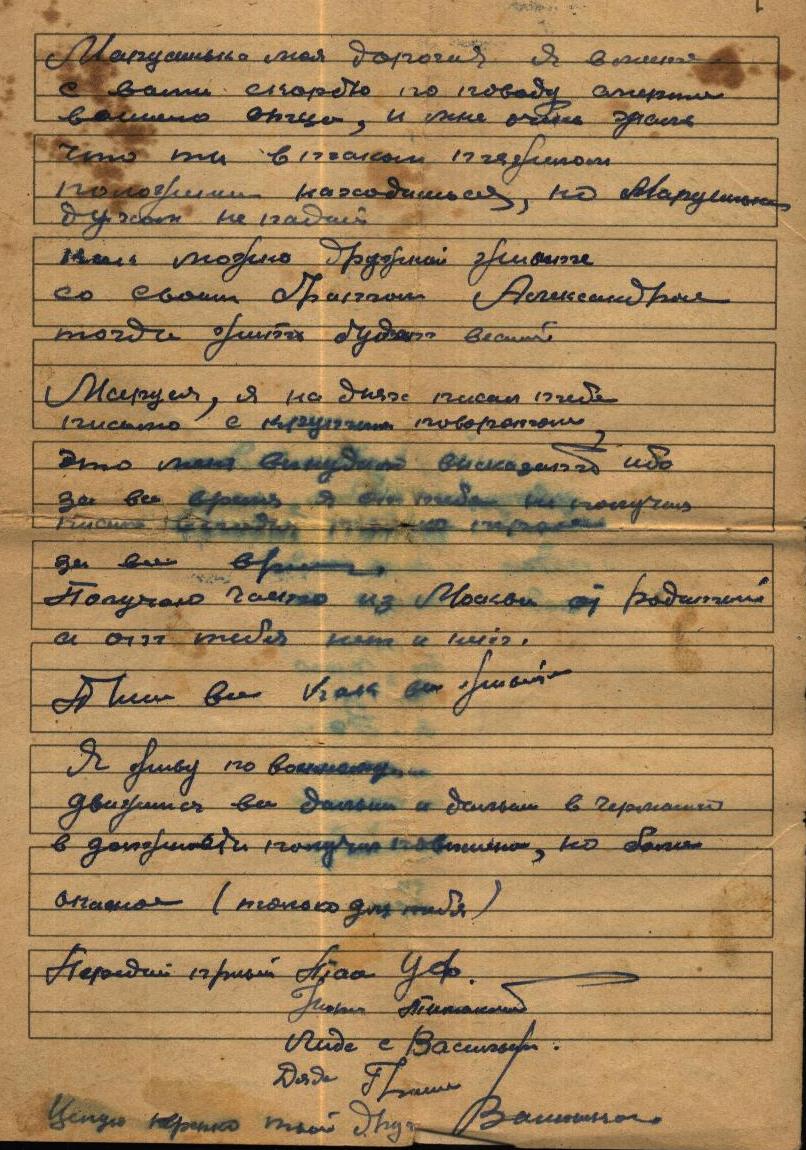 Марусинька моя дорогая я вместе
с вами скорблю по поводу смерти
вашего отца, и мне очень жаль
что ты в таком тяжелом
положении находишься, но Марусинька
духом не падай
как можно дружней живите
со своим братом Александром
тогда жить будет веселей
Маруся, я на днях писал тебе
письмо с крупным поворотом,
это меня вынудило высказать ибо
за все время я от тебя не получил
письма
за все время.
Получаю часто из Москвы от родителей
а от тебя нет и нет.
Пиши все как вы живете
Я живу по военному
движимся все дальше и дальше в Германию
в должности получил повышение, но более
опасное (только для тебя)
Передай привет
Лиде с Василием.
Дяде
Целую крепко твой друг Валентин